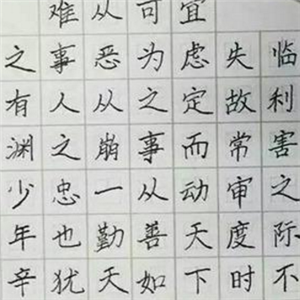 临利害之际不
失故常审度时
宜虑定而动天下
可为之事从善如
从恶从崩一勤天
难事人之忠也犹
之有渊少年辛